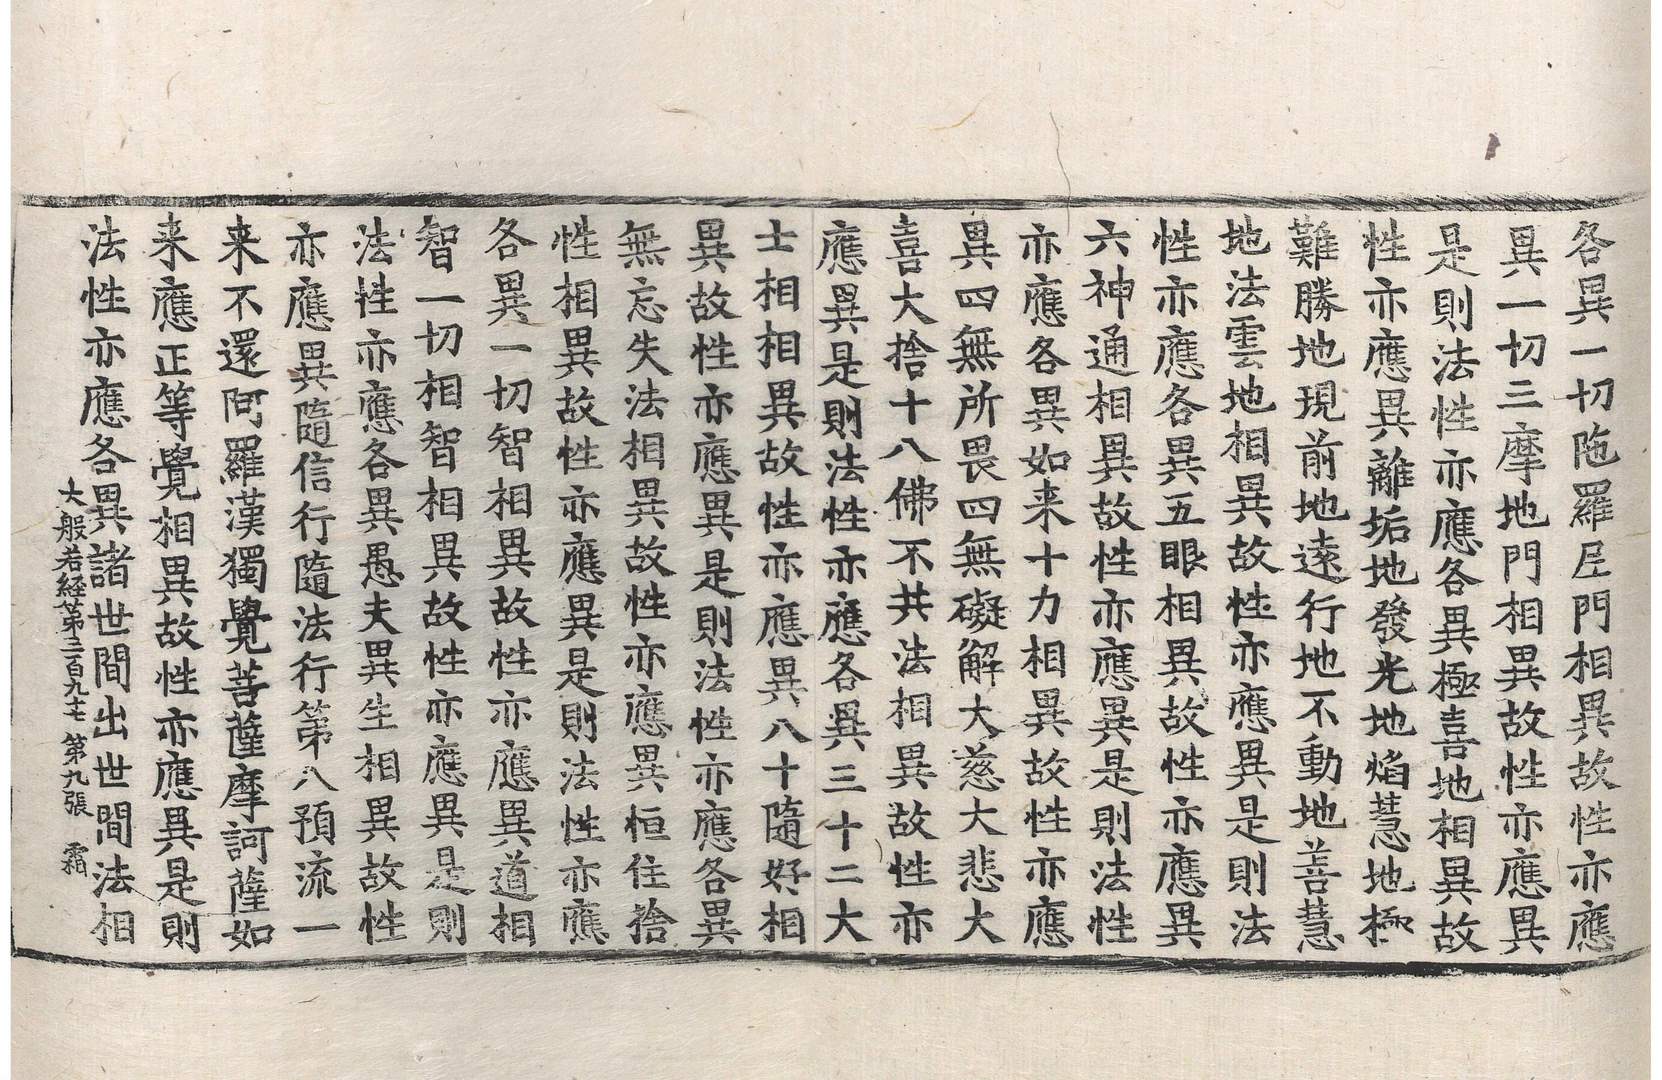 各異一切陁羅尼門相異故性亦應
異一切三摩地門相異故性亦應異
是則法性亦應各異極喜地相異故
性亦應異離垢地發光地焰慧地極
難勝地現前地遠行地不動地善慧
地法雲地相異故性亦應異是則法
性亦應各異五眼相異故性亦應異
六神通相異故性亦應異是則法性
亦應各異如来十力相異故性亦應
異四無所畏四無礙解大慈大悲大
喜大捨十八佛不共法相異故性亦
應異是則法性亦應各異三十二大
士相相異故性亦應異八十隨好相
異故性亦應異是則法性亦應各異
無忘失法相異故性亦應異恒住捨
性相異故性亦應異是則法性亦應
各異一切智相異故性亦應異道相
智一切相智相異故性亦應異是則
法性亦應各異愚夫異生相異故性
亦應異隨信行隨法行第八預流一
来不還阿羅漢獨覺菩薩摩訶薩如
来應正等覺相異故性亦應異是則
法性亦應各異諸世間出世間法相
大般若經第三百九十七 第九張 霜